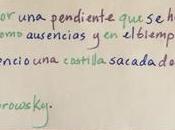 or una pendiente que se h
omo ausencias y en el tiemp
encio una costilla sacada d
browsky.